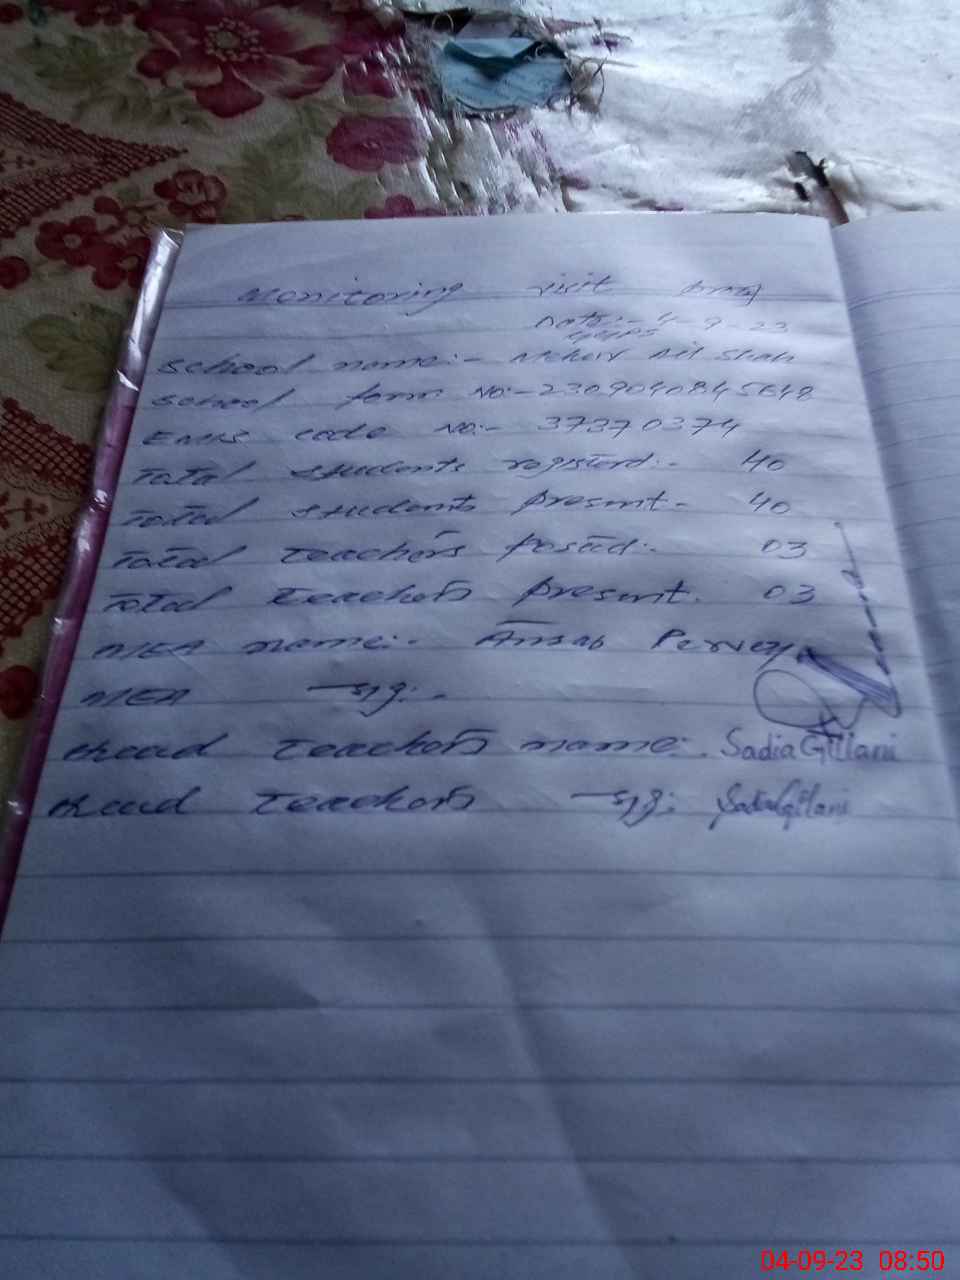 Monitoring visit
Date:- 4-9-23
GGPS
School name:- Meher Ali Shah
School form No:- 2309040845648
EMIS code No:- 37370374
Total students registerd:- 40
Total students present:- 40
Total teachers posted:- 03
Total teachers present. 03
MEA name:- Ansab Pervez
MEA sig:-
Head teachers name:- Sadia Gillani
Head teachers sig: Sadia Gillani
04-09-23 08:50